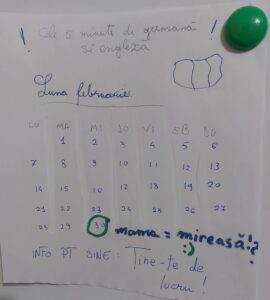 ! Câte 5 minute de germană !
și engleză
Luna februarie
LU MA MI JO VI SB DU
1 2 3 4 5 6
7 8 9 10 11 12 13
14 15 16 17 18 19 20
21 22 23 24 25 26 27
28 29 30 mama = mireasă!?
:)
INFO PT SINE: Tine-te de
lucru!